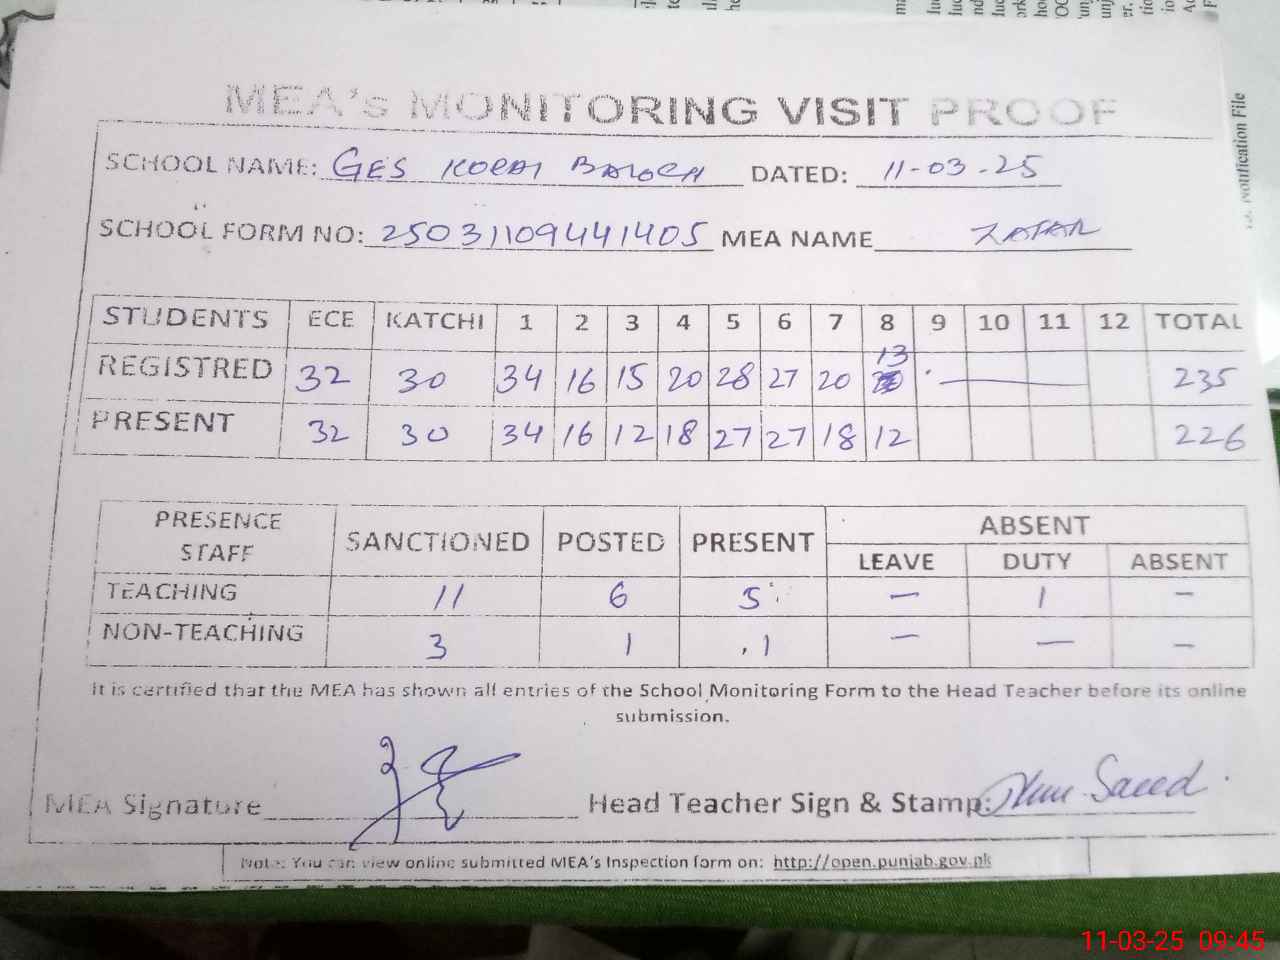 MEA's MONITORING VISIT PROOF
SCHOOL NAME: GES KORAI BALOCH DATED: 11-03-25
SCHOOL FORM NO: 25031109441405 MEA NAME ZAFAR
STUDENTS ECE KATCHI 1 2 3 4 5 6 7 8 9 10 11 12 TOTAL
REGISTRED 32 30 34 16 15 20 28 27 20 13 235
PRESENT 32 30 34 16 12 18 27 27 18 12 226
PRESENCE STAFF SANCTIONED POSTED PRESENT ABSENT
LEAVE DUTY ABSENT
TEACHING 11 6 5 — 1 —
NON-TEACHING 3 1 1 — — —
It is certified that the MEA has shown all entries of the School Monitoring Form to the Head Teacher before its online
submission.
MEA Signature Head Teacher Sign & Stamp: Saeed
Note: You can view online submitted MEA's Inspection form on: http://open.punjab.gov.pk
Notification File
11-03-25 09:45